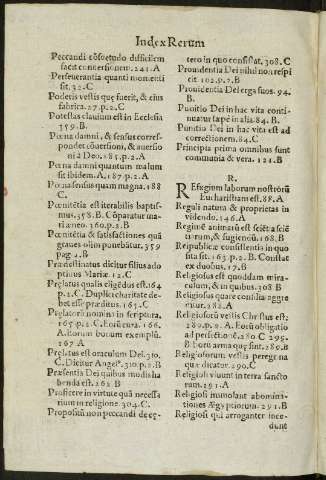 Index Rerum
Peccandi cõsuetudo difficilem
facit conuersionem. 241. A
Perseuerantia quanti momenti
sit. 32. C
Poderis vestis quę fuerit, & eius
fabrica. 27. p. 2. C
Potestas clauium est in Ecclesia
359. B.
Pœna damni, & sensus corres-
pondet cõuersioni, & auersio
ni à Deo. 185. p. 2. A
Pœna damni quantum malum
sit ibidem. A. 187. p. 2. A
Pœna sensus quam magna. 188
C.
Pœnitẽtia est iterabilis baptis-
mus. 358. B. Cõparatur ma-
ri æneo. 360. p. 2. B
Pœnitẽtiæ & satisfactiones quã
graues olim ponebãtur. 359
pag. 2. B.
Prædestinatus dicitur filius ado
ptiuus Mariæ. 12. C
Pręlatus qualis eligẽdus est. 164
p. 2. C. Duplici charitate de-
bet esse pręditus. 165. C
Pręlatorũ nomina in scriptura.
167. p. 2. C. Eorũ cura. 166.
A. Eorum bonum exemplũ.
267 A
Pręlatus est oraculum Dei. 310.
C. Dicitur Angelꝰ. 310. p. 2. B
Præsentia Dei quibus modis ha
benda est. 262 B
Proficere in virtute quã necessa
rium in religione. 304. C.
Propositũ non peccandi de cę-
tero in quo consistat. 308. C
Prouidentia Dei nihil non respi
cit 102. p. 2. B
Prouidentia Dei erga suos. 94.
B.
Punitio Dei in hac vita conti-
nuatur sæpe in alia. 84. B.
Punitio Dei in hac vita est ad
correctionem. 84. C
Principia prima omnibus sunt
communia & vera. 121. B
R.
Refugium laborum nostrorũ
Eucharistiam est. 88. A
Reguli natura & proprietas in
videndo. 146. A
Regimẽ animarũ est sciẽtia sciẽ
tiarum, & fugiẽdũ. 168. B
Reipublicæ consistentis in quo
sita sit. 163. p. 2. B. Constat
ex duobus. 17. B
Religiosus est quoddam mira-
culum, & in quibus. 308 B
Religiosus quare consilia aggre
diatur. 282. A
Religiosorũ vestis Christus est:
289. p. 2. A. Eorũ obligatio
ad perfectionẽ. 280 C 295.
B Eorũ arma quę sint. 280. B
Religiosorum vestis peregrina
quæ dicatur. 290. C
Religiosi viuunt in terra sancto
rum. 291. A
Religiosi immolant abomina-
tiones Ægyptiorum. 291. B
Religiosi qui arroganter ince-
dunt